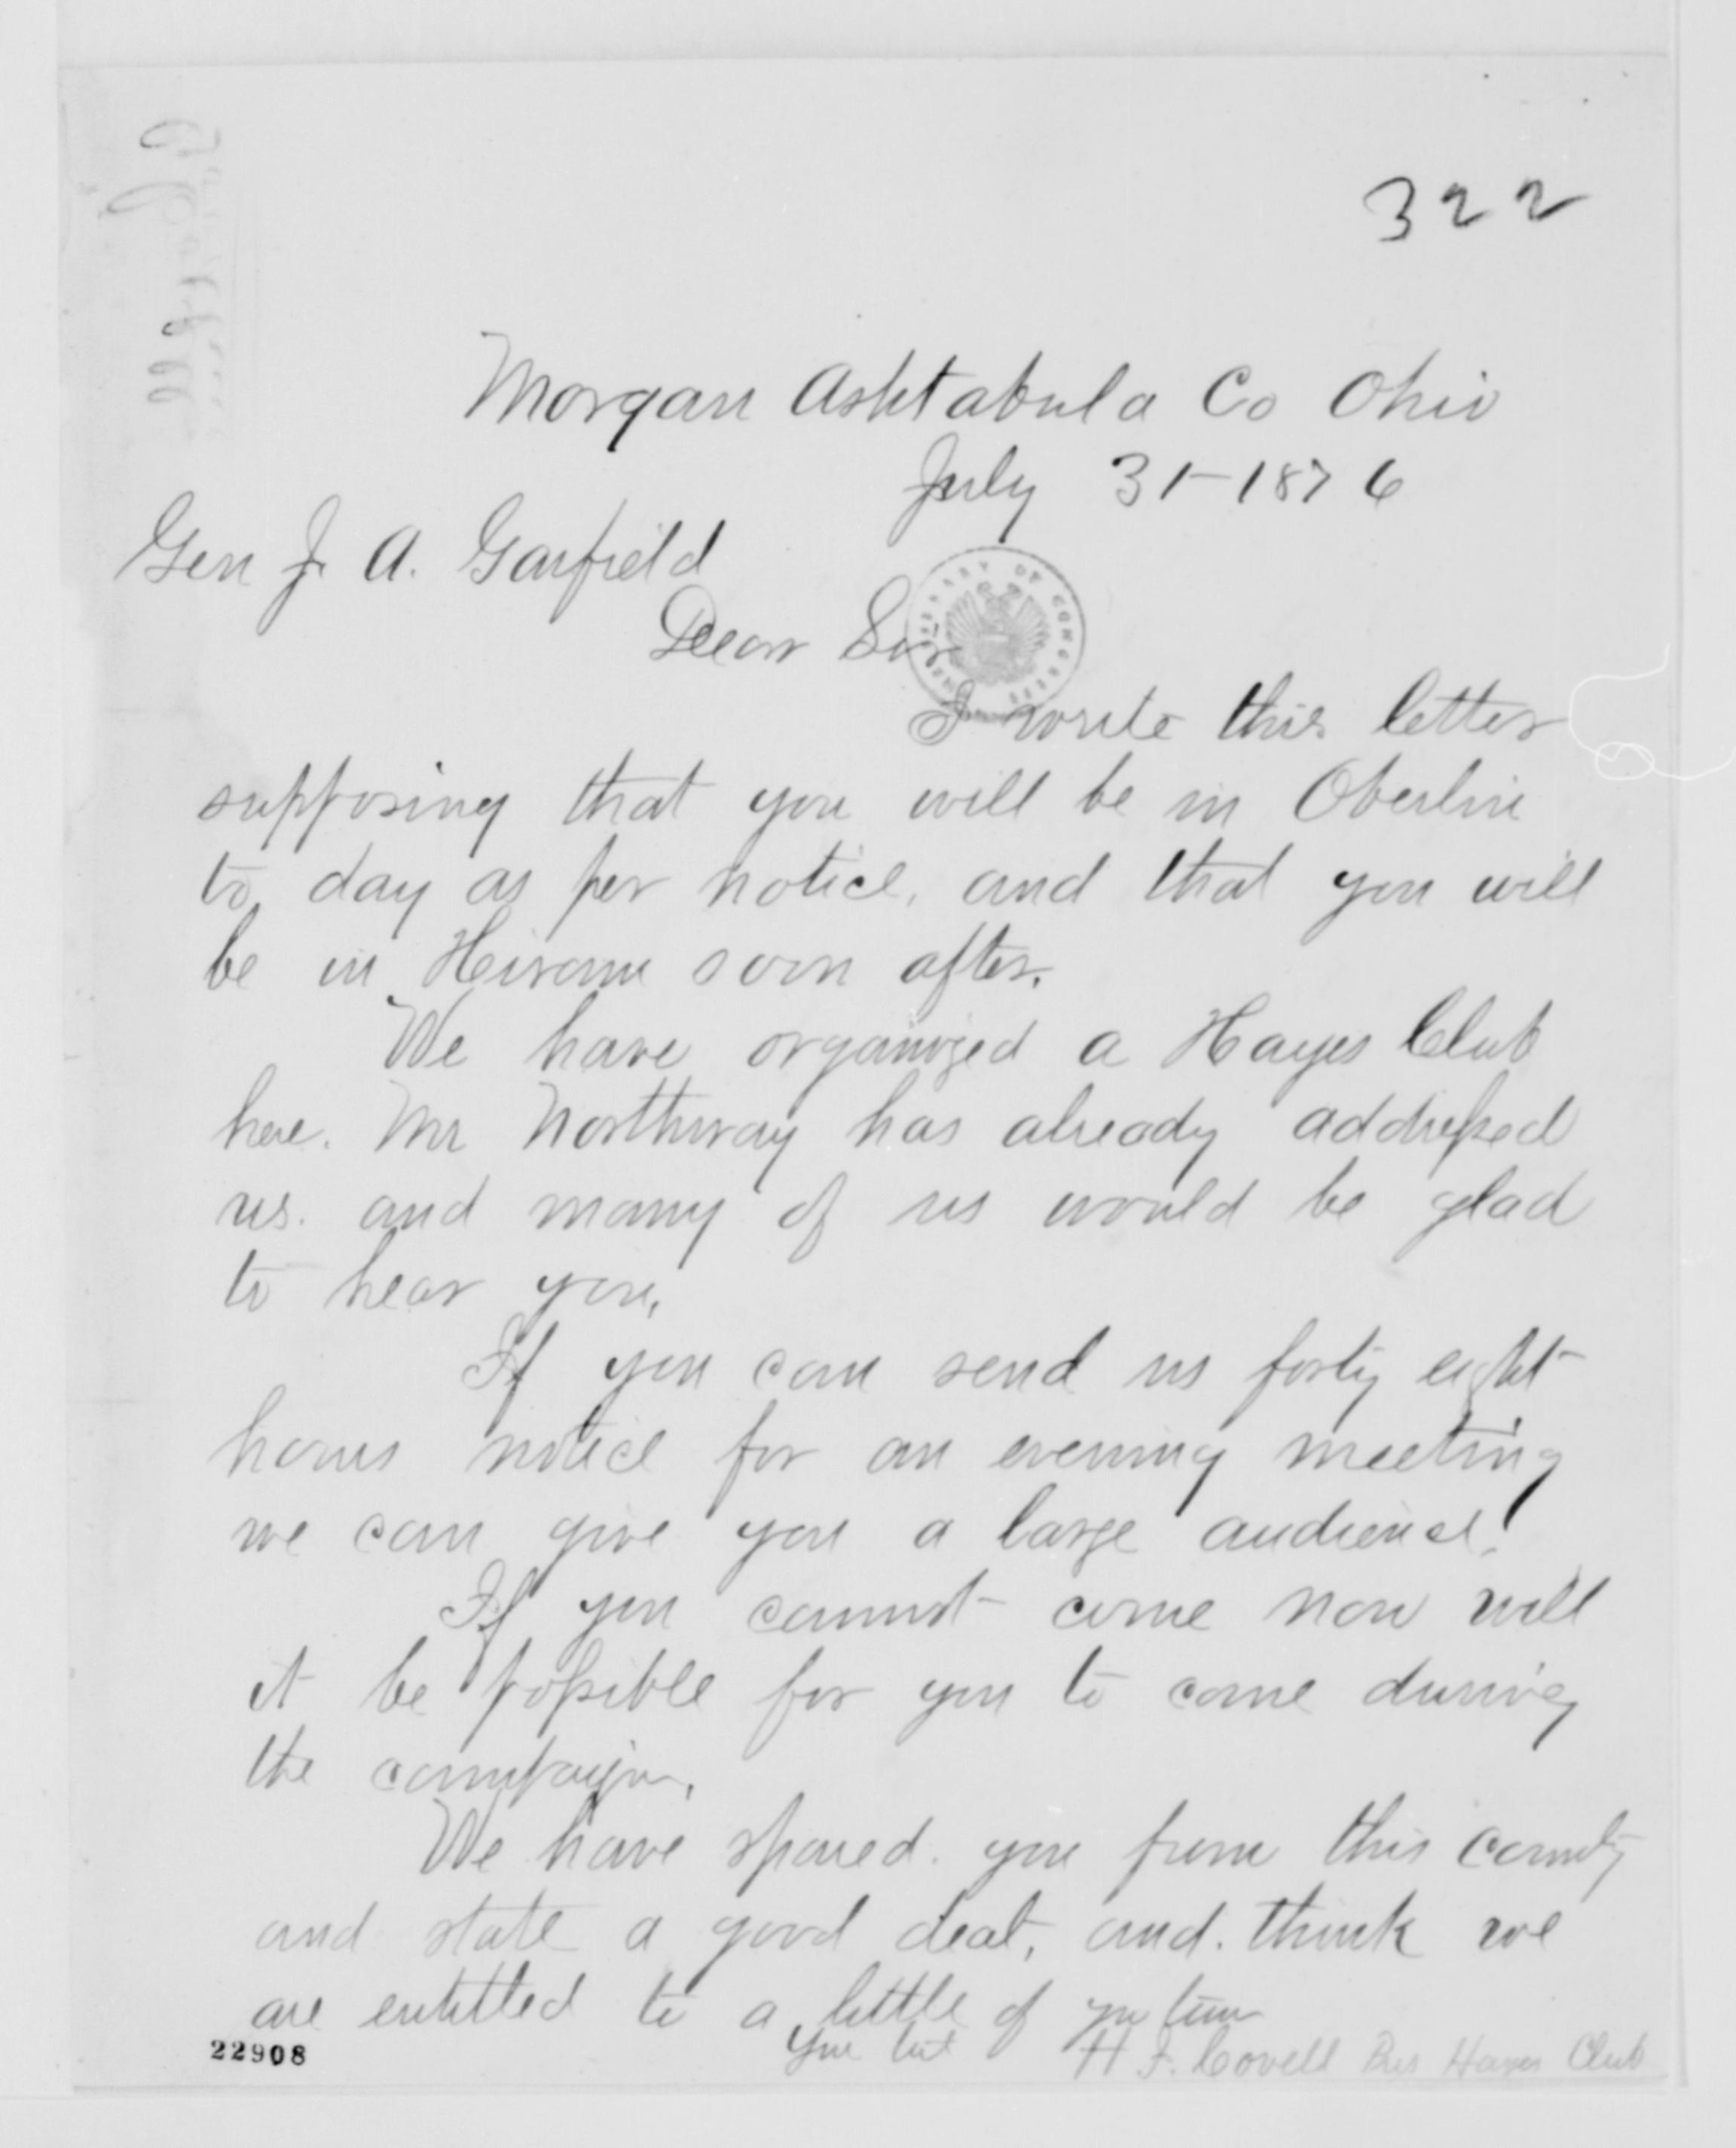 322
Morgan Ashtabula Co Ohio
July 31-1876
Gen J. A. Garfield
Dear Sir
LIBRARY OF CONGRESS
I write this letter
supposing that you will be in Oberlin
to day as per notice, and that you will
be in Heiram soon after.
We have organized a Hayes Club
here. Mr Northway has already addressed
us. and many of us would be glad
to hear you,
If you can send us forty eight
hours notice for an evening meeting
we can give you a large audience!
If you cannot come now will
it be possible for you to come during
the campaign.
We have spared you from this county
and state a good deal, and think we
are entitled to a little of yr time
22908
H. F. Covell Pres Hayes Club